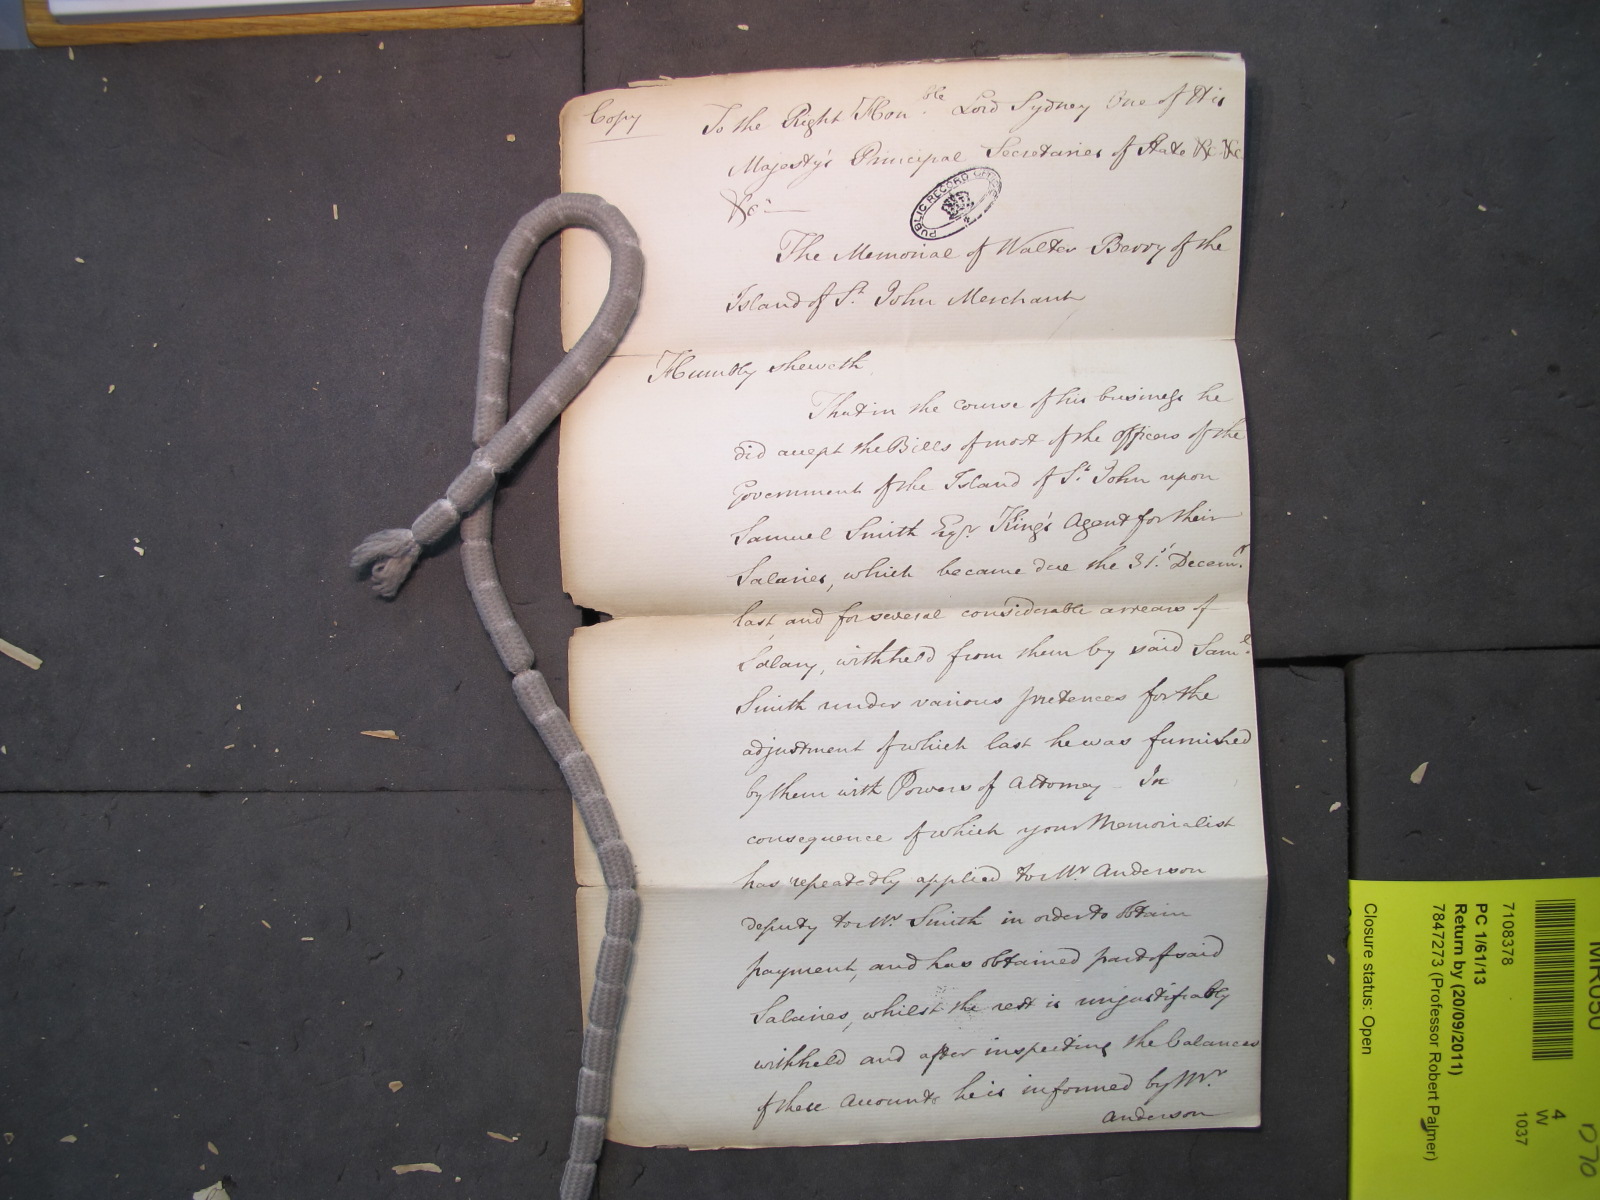 Copy
To the Right Hon.ble Lord Sydney One of His
Majesty's Principal Secretaries of State &c &c
&c:—
PUBLIC RECORD OFFICE
The Memorial of Walter Berry of the
Island of St. John Merchant
Humbly sheweth
That in the course of his business he
did accept the Bills of most of the officers of the
Government of the Island of St. John upon
Samuel Smith Esqr. King's Agent for their
Salaries, which became due the 31st. Decemr.
last and for several considerable arrears of
Salary, withheld from them by said Saml.
Smith under various pretences for the
adjustment of which last he was furnished
by them with Powers of Attorney — In
consequence of which your Memorialist
has repeatedly applied to Mr. Anderson
deputy to Mr. Smith in order to obtain
payment, and has obtained part of said
Salaries, whilst the rest is unjustifiably
withheld and after inspecting the balances
of these Accounts he is informed by Mr.
Anderson
MR050
7108378
PC 1/61/13
Return by (20/09/2011)
7847273 (Professor Robert Palmer)
Closure status: Open
4
W
1037
D70